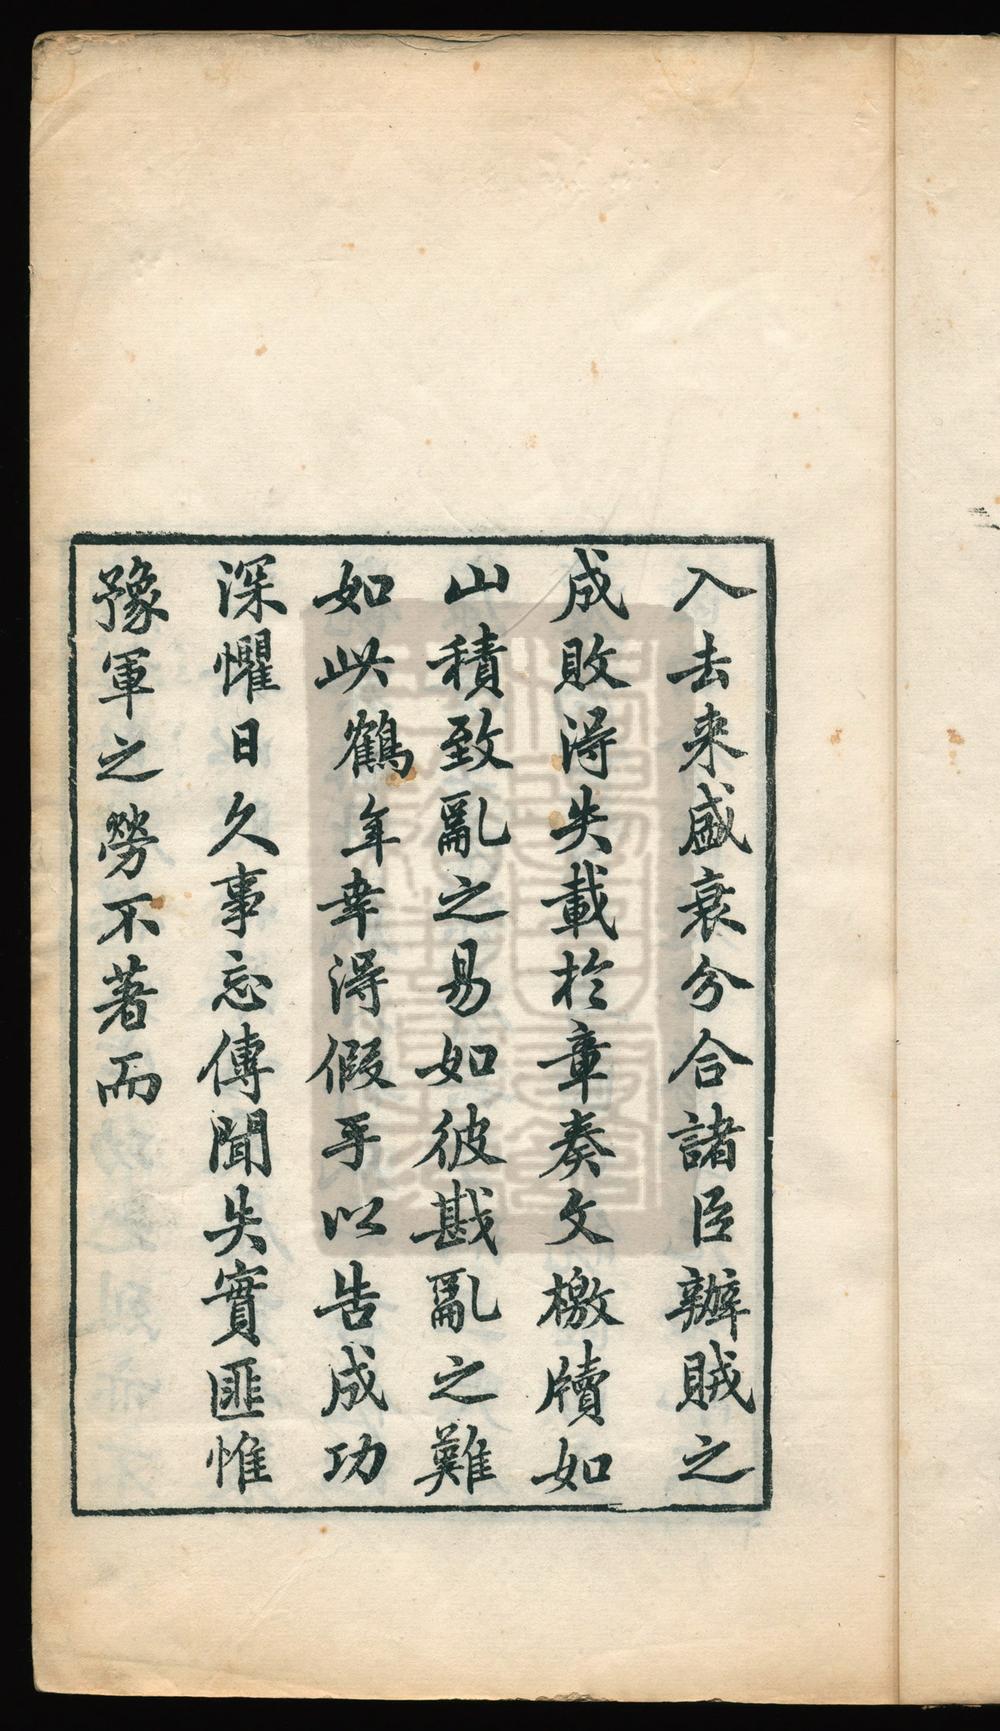 入去来盛衰分合諸臣辦賊之
成敗淂失載於章奏文檄牘如
山積致亂之易如彼戡亂之難
如此鶴年幸淂假手以告成功
深懼日久事忘傳聞失實匪惟
豫軍之勞不著而